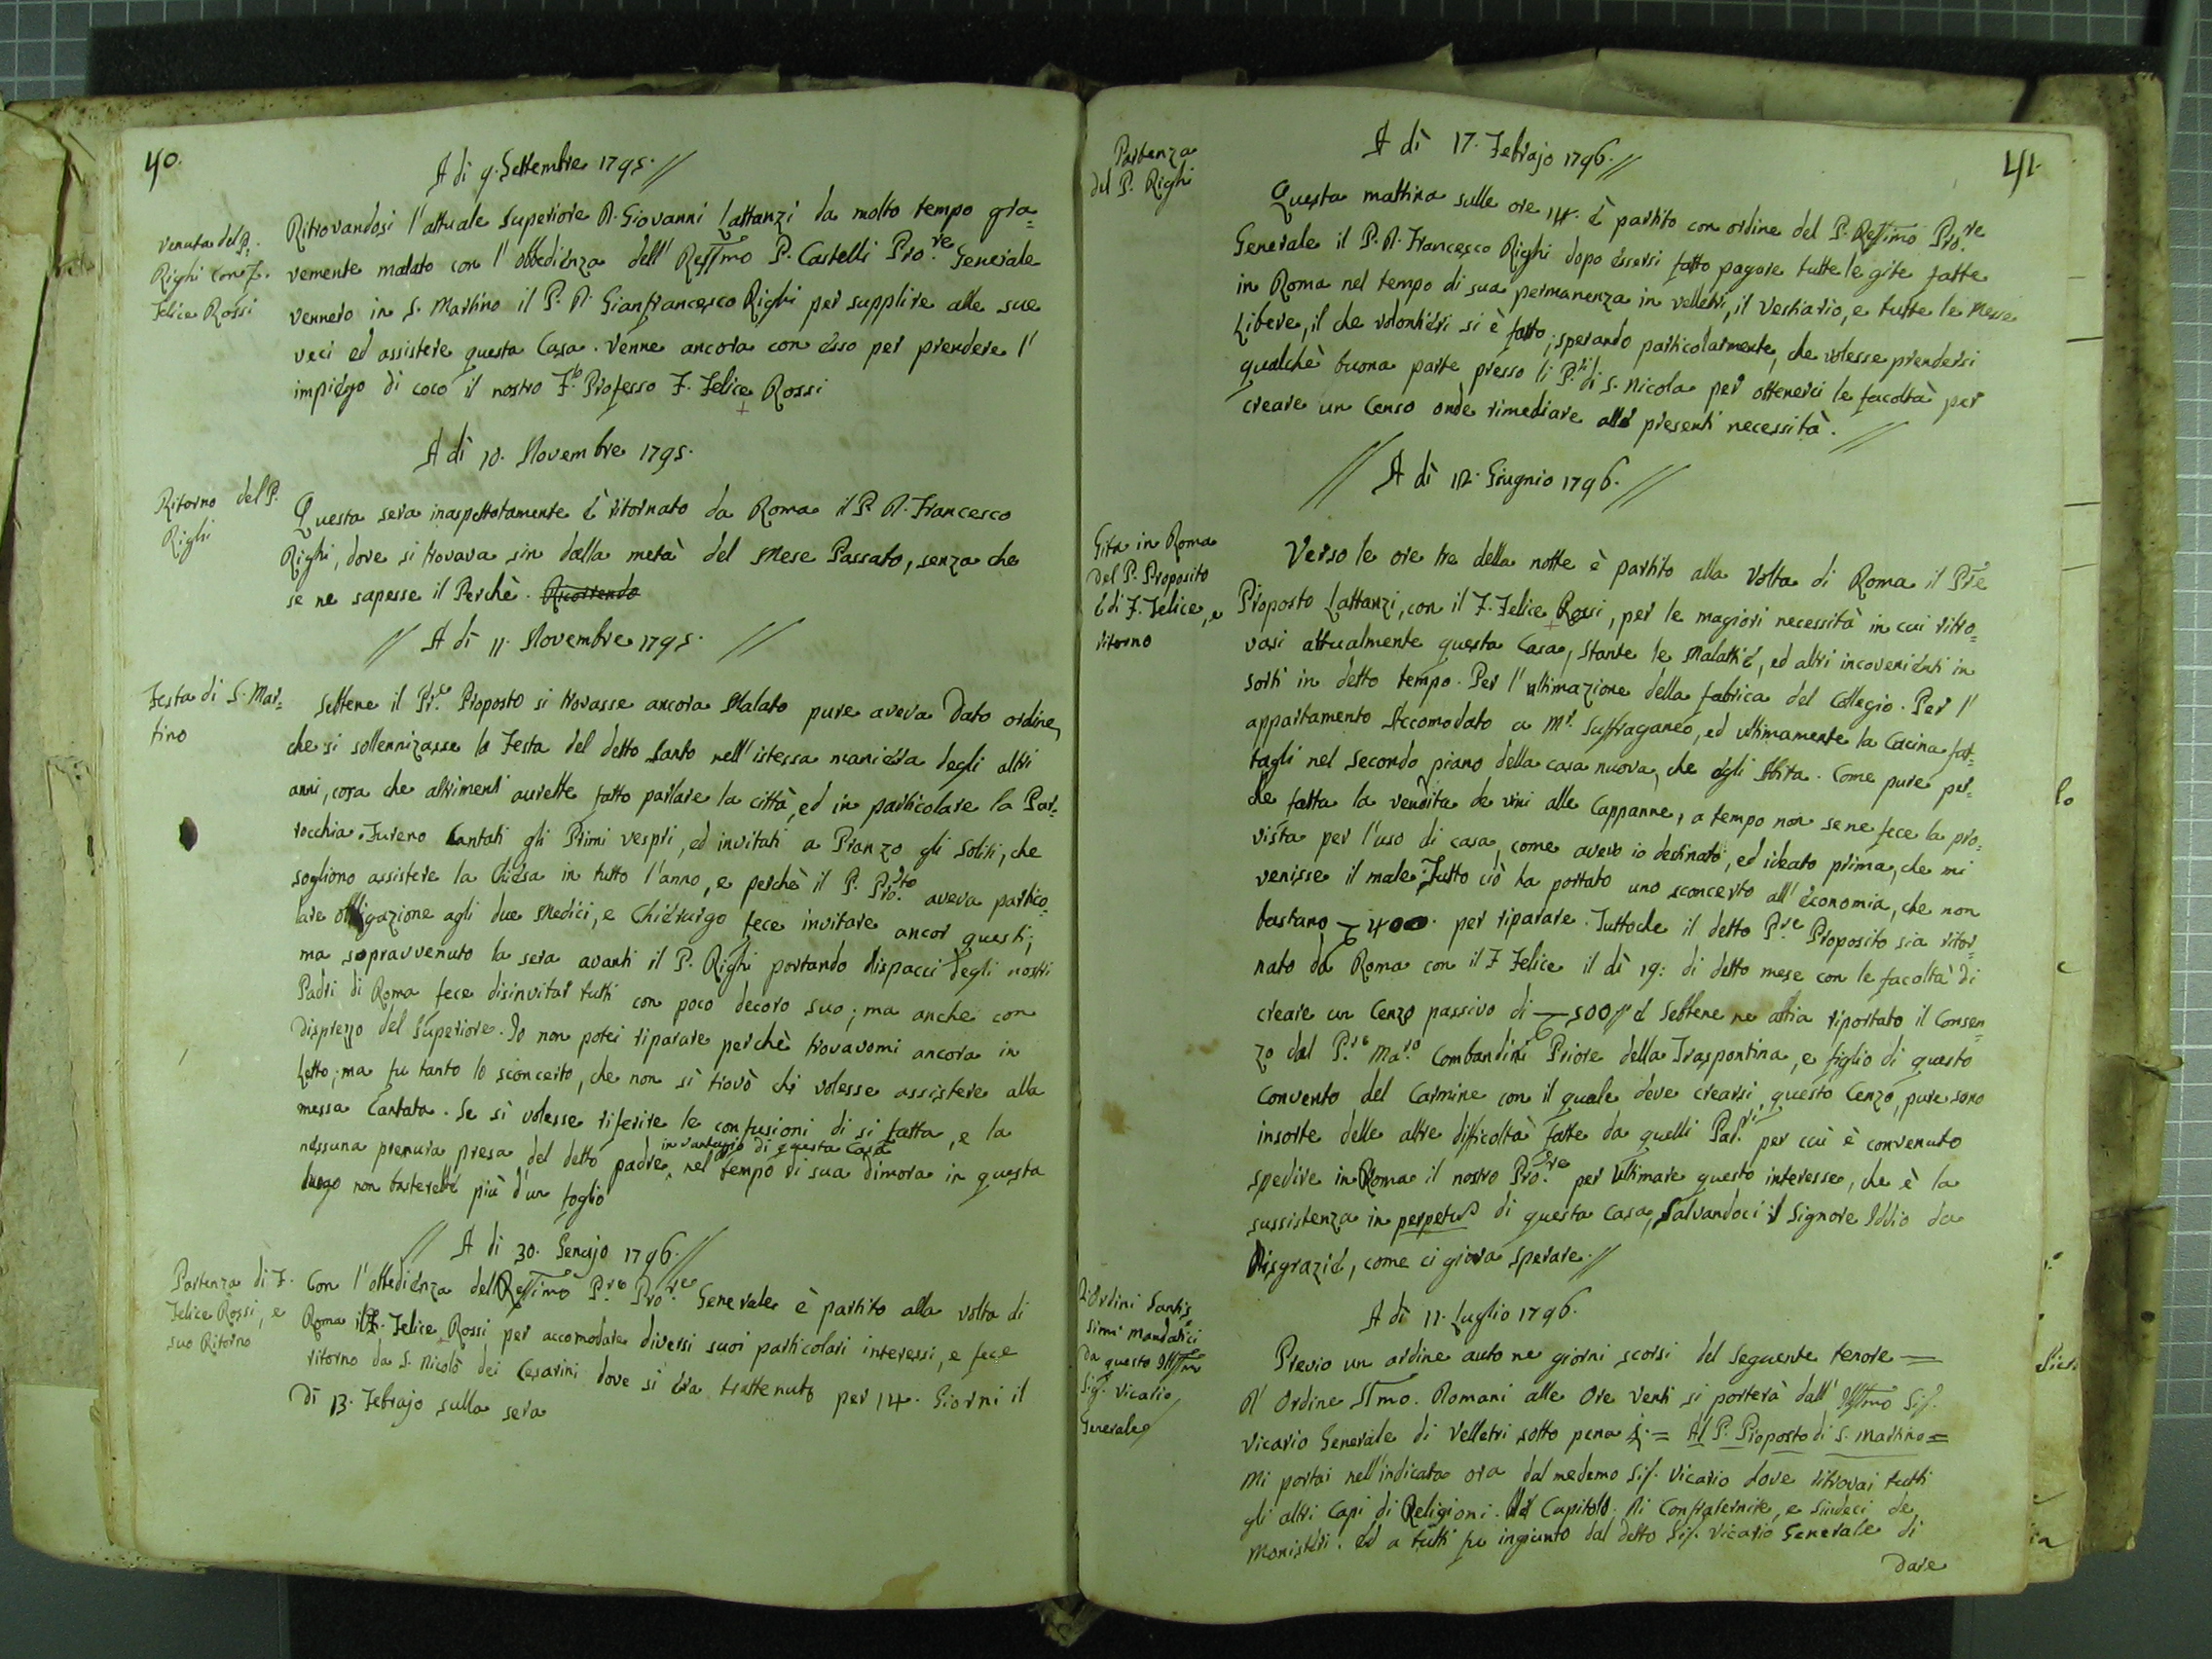 40.
A di 9. Settembre 1795. //
Venuta del P.
Righi con F.
Felice Rossi
Ritrovandosi l'attuale Superiore D. Giovanni Lattanzi da molto tempo gra=
vemente malato con l'obbedienza dell' Ressmo P. Castelli Pro.re Generale
vennero in S. Martino il P. D. Gianfrancesco Righi per supplire alle sue
veci ed assistere questa Casa. Venne ancora con esso per prendere l'
impiego di coco il nostro F.lo Professo F. Felice Rossi
A dì 10. Novembre 1795.
Ritorno del P.
Righi
Questa sera inaspettatamente è ritornato da Roma il P. D. Francesco
Righi, dove si trovava sin dalla metà del Mese Passato, senza che
se ne sapesse il Perchè. Ricorrendo
// A dì 11. Novembre 1795. //
Festa di S. Mar=
tino
Sebbene il Pr.e Proposto si trovasse ancora Malato pure aveva Dato ordine,
che si sollennizasse la Festa del detto Santo nell'istessa maniera degli altri
anni, cosa che altrimenti avrebbe fatto parlare la città, ed in particolare la Par=
rocchia. Furono Cantati gli Primi vespri, ed invitati a Pranzo gli Soliti, che
sogliono assistere la Chiesa in tutto l'anno, e perchè il P. Pro.sto aveva partico=
lare obligazione agli due Medici, e Chierurgo fece invitare ancor questi;
ma sopravvenuto la sera avanti il P. Righi portando dispacci degli nostri
Padri di Roma fece disinvitar tutti con poco decoro suo; ma anche con
Disprezzo del Superiore. Io non potei riparare perchè trovavomi ancora in
Letto; ma fu tanto lo sconcerto, che non si trovò chi volesse assistere alla
messa Cantata. Se si volesse riferire le confusioni di si fatta, e la
nessuna premura presa del detto padre in vantaggio di questa Casa nel tempo di sua dimora in questa
luogo non basterebbe più d'un foglio
// A di 30. Genajo 1796. //
Partenza di F.
Felice Rossi, e
suo Ritorno
Con l'obbedienza dell Ressimo P.re Pro.re Generale è partito alla volta di
Roma il F. Felice Rossi per accomodare diversi suoi particolari interessi, e fece
ritorno da S. Nicolò dei Cesarini dove si era trattenuto per 14. Giorni il
Di 13. Febrajo sulla sera
41.
Partenza
del P. Righi
A dì 17. Febrajo 1796. //
Questa mattina sulle ore 14. è partito con ordine del P. Ressimo Pro.re
Generale il P. D. Francesco Righi dopo essersi fatto pagare tutte le gite fatte
in Roma nel tempo di sua permanenza in velletri, il Vestiario, e tutte le Messe
Libere, il che volontieri si è fatto; sperando particolarmente, che volesse prendersi
qualchè buona parte presso li P.ri di S. Nicola per ottenerci le facoltà per
creare un Censo onde rimediare alle presenti necessità. //
// A dì 12. Giugnio 1796. //
Gita in Roma
del P. Proposito
è di F. Felice, e
ritorno
Verso le ore tre della notte è partito alla Volta di Roma il Pre
Proposto Lattanzi, con il F. Felice Rossi, per le magiori necessità in cui ritro=
vasi attualmente questa Casa, Stante le Malattie, ed altri incovenienti in
sorti in detto tempo. Per l'ultimazione della fabrica del Collegio. Per l'
appartamento Accomodato a Mr. Suffraganeo, ed ultimamente la Cucina fat=
tagli nel secondo piano della casa nuova, che egli Abita. Come pure per=
che fatta la vendita de vini alle Cappanne, a tempo non se ne fece la pro=
vista per l'uso di casa, come avevo io destinato, ed ideato prima, che mi
venisse il male. Tutto ciò ha portato uno sconcerto all'economia, che non
bastano 400. per riparare. Tuttoche il detto P.re Proposito sia ritor=
nato da Roma con il F Felice il dì 19: di detto mese con le facoltà di
creare un Cenzo passivo di 500 // è Sebbene ne abbia riportato il Consen=
zo dal P.re Ma.ro Combandini Priore della Traspontina, e figlio di questo
Convento del Carmine con il quale deve crearsi questo Cenzo, pure sono
insorte delle altre difficoltà fatte da quelli Pad.ri, per cui è convenuto
spedire in Roma il nostro Pro.re per Ultimare questo interesse, che è la
sussistenza in perpetuo di questa Casa, Salvandoci il Signore Iddio da
Disgrazie, come ci giova sperare. //
Ordini Santis
simi mandatici
Da questo Illmo
Sig. Vicario
Generale
A dì 11. Luglio 1796.
Previo un ordine auto ne giorni scorsi del seguente tenore =
D' Ordine SSmo. Domani alle Ore Venti si porterà dall' Illmo Sig.
Vicario Generale di Velletri sotto pena = Al P. Proposto di S. Martino =
Mi portai nell'indicata ora dal medemo Sig. Vicario dove ritrovai tutti
gli altri Capi di Religioni. Del Capitolo. Di Confraternite, e Sindeci de
Monisteri. Ed a tutti fu ingiunto dal detto Sig. Vicario Generale di
Dare